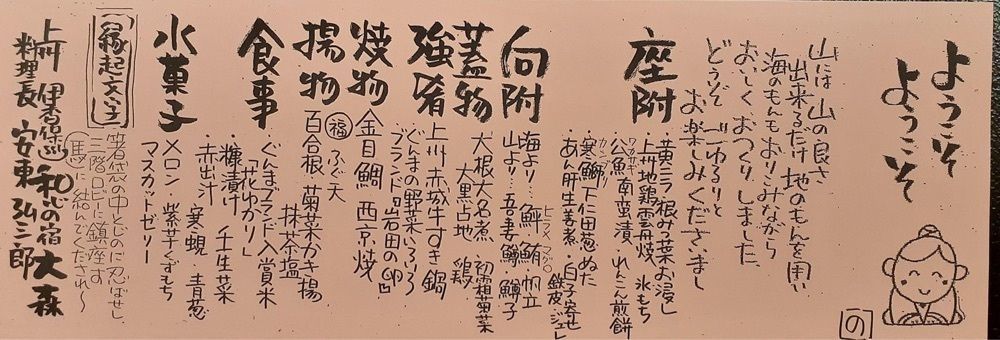 ようこそ
ようこそ
の
山には山の良さ
出来るだけ地のもんを用い
海のもんもおりこみながら
おいしくおつくりしました
どうぞごゆるりと
お楽しみくださいまし
座附
・黄ニラ根みつ葉お浸し
・上州地鶏雲丹焼 氷もち
ワカサギ
・公魚南蛮漬 れんこん煎餅
カンブリ
・寒鰤下仁田葱ぬた
あん肝生姜煮・白子寄せ
鉄皮ジュレ
向附
海より… 鮃 鮪 帆立
ヒラメ マグロ
山より… 吾妻鱒 鱒子
蓋物
大根大名煮 初霜菊菜
大黒占地 鶏
強肴
上州赤城牛すき鍋
ぐんまの野菜いろいろ
ブランド「岩田の卵」
焼物
金目鯛西京焼
揚物
福 ふく天
百合根 菊菜かき揚
抹茶塩
食事
・ぐんまブランド入賞米
「花ゆかり」
・糠漬け 壬生菜
・赤出汁 寒蜆 青葱
水菓子
メロン・紫芋くずもち
マスカットゼリー
(縁起文字)
箸袋の中とじのに忍ばせし
三階ロビーに鎮座す
(馬)に結んでくだされ〜
上州 伊香保 和心の宿 大森
料理長 安東弘三郎